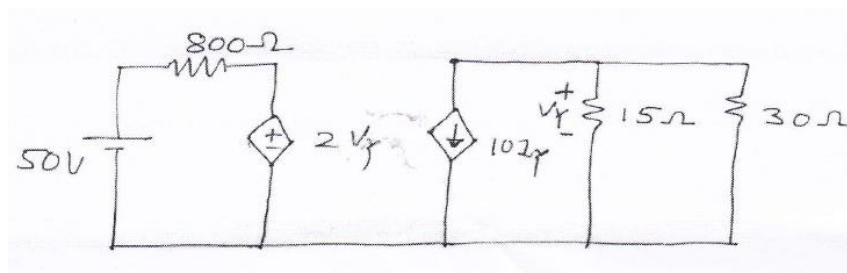 800Ω
50V
+
-
2 Vγ
10iγ
+
Vγ
-
15Ω
30Ω